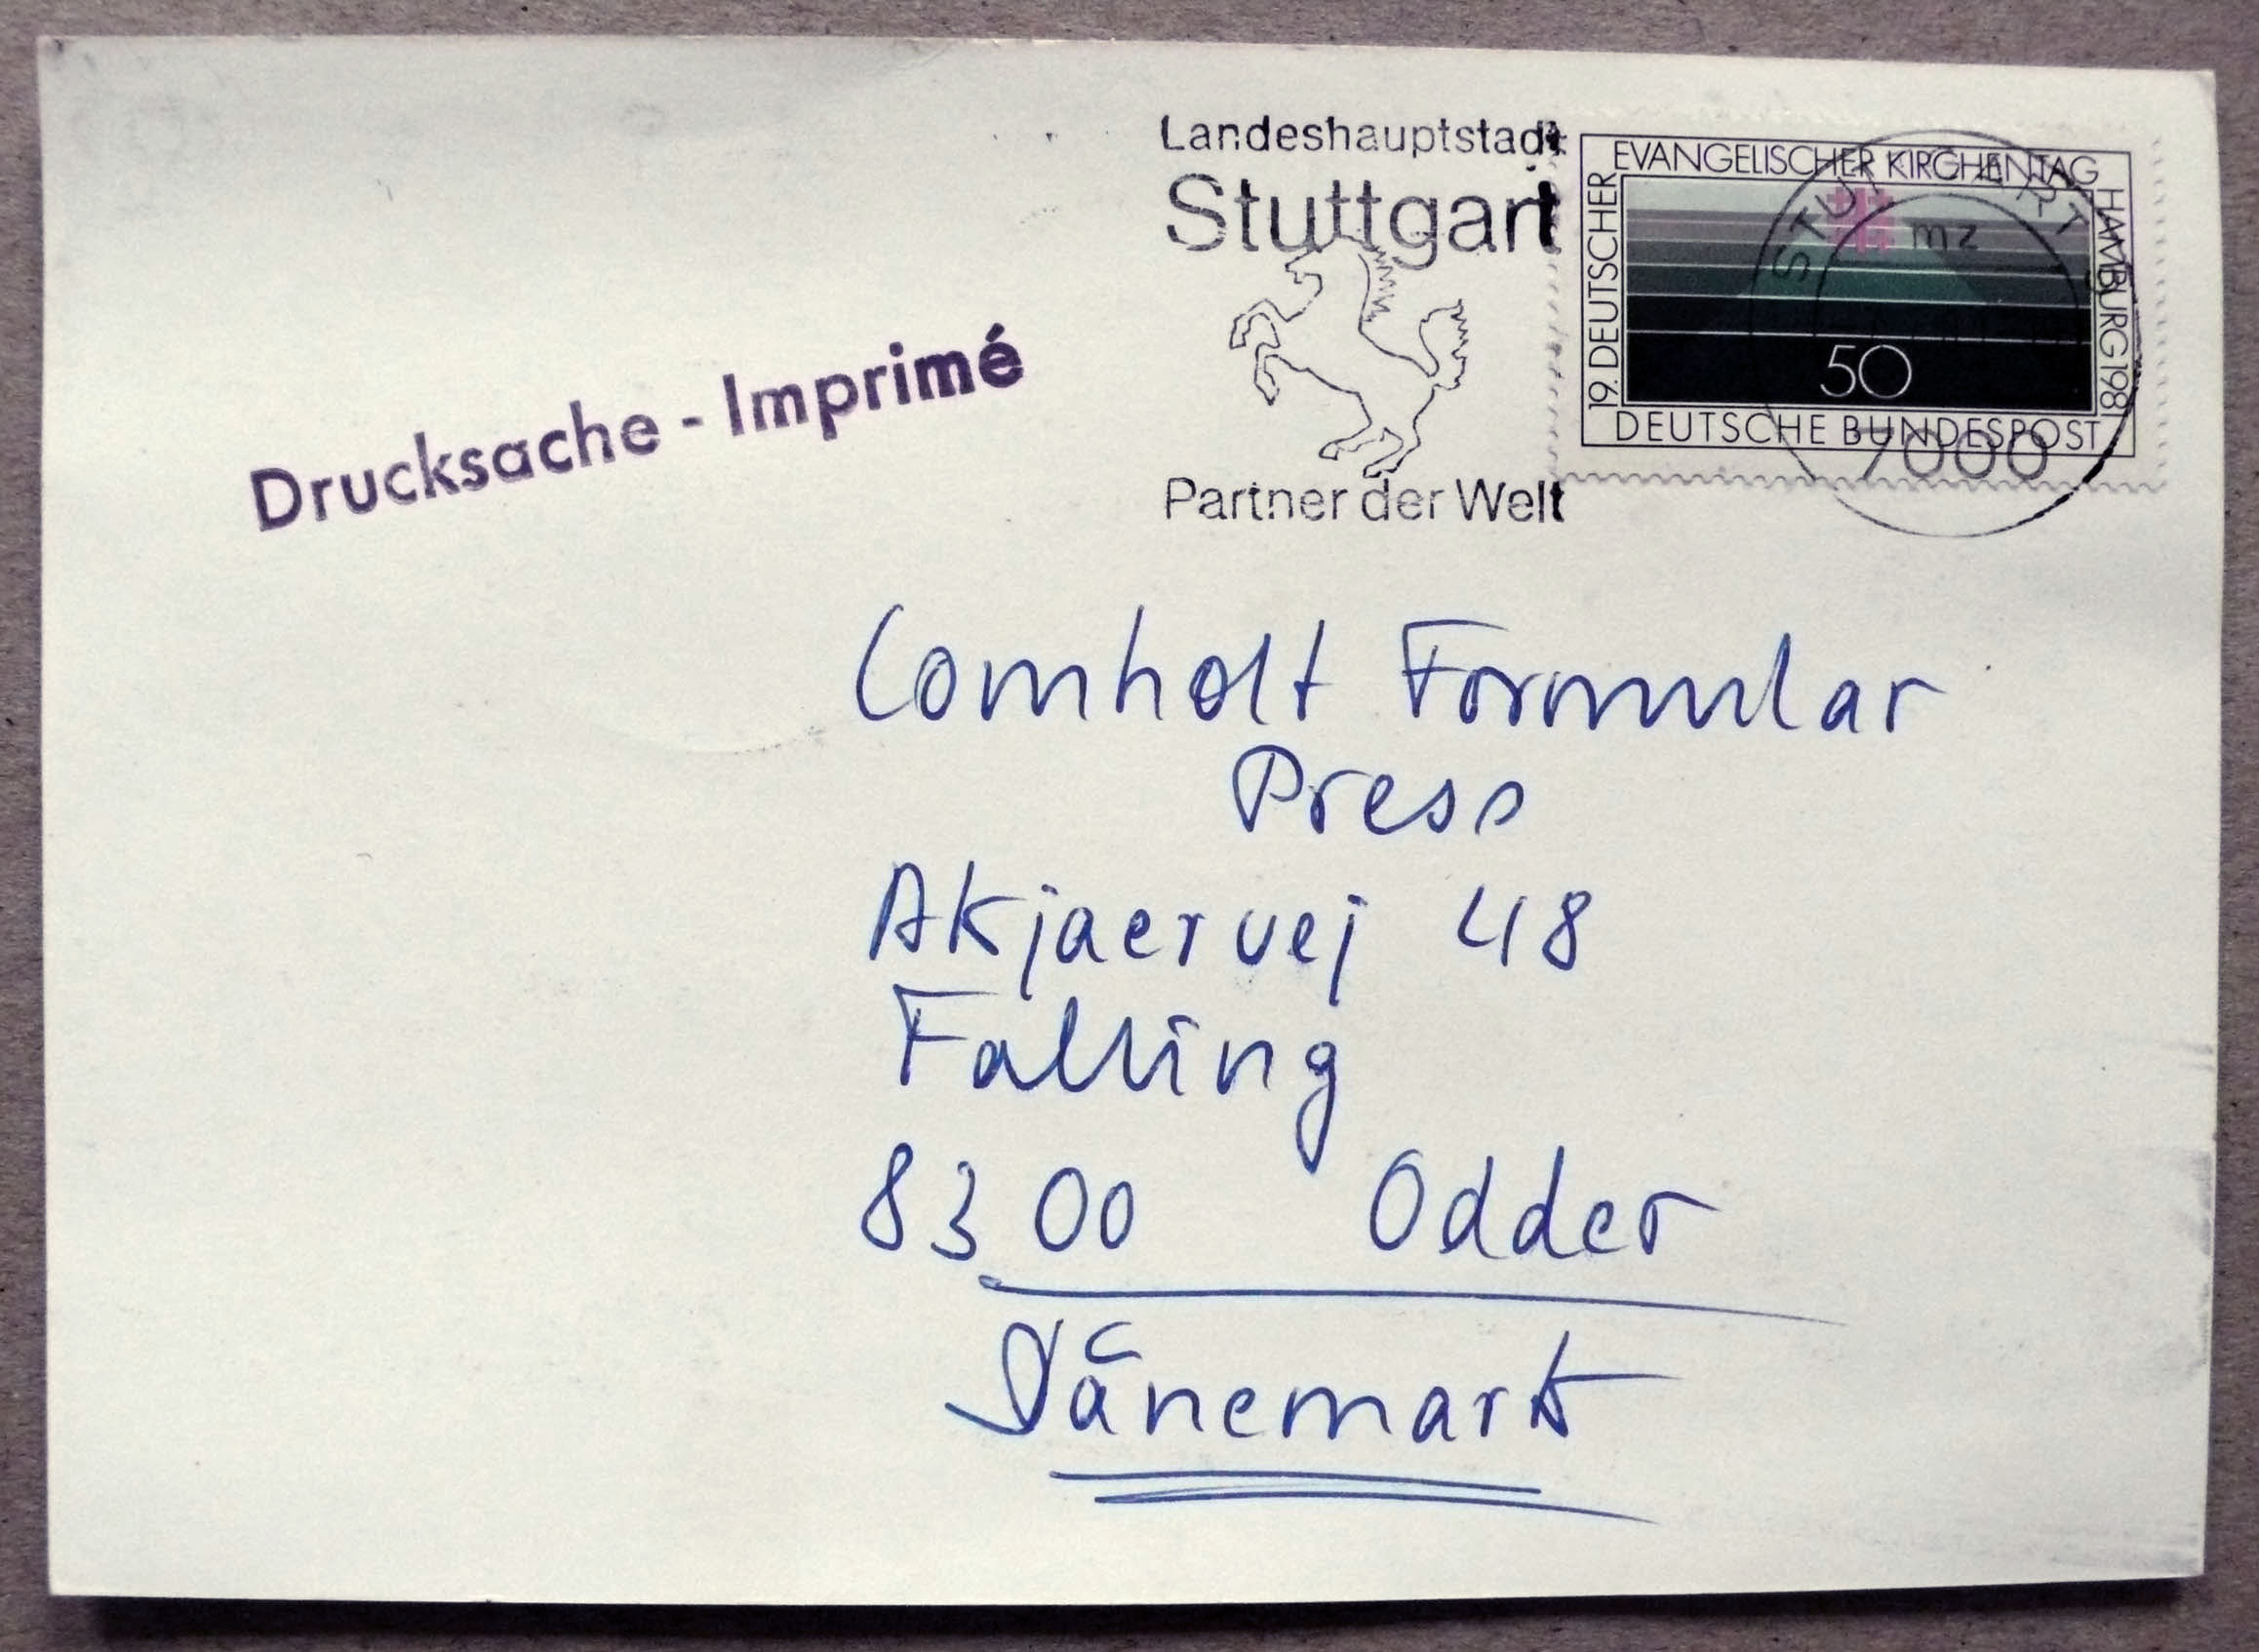 Landeshauptstadt
Stuttgart
Partner der Welt
EVANGELISCHER KIRCHENTAG
19. DEUTSCHER
HAMBURG 1981
50
DEUTSCHE BUNDESPOST
mz
7000
Drucksache - Imprimé
Comholt Formular
Press
Akjaervej 48
Falling
8300 Odder
Dänemark